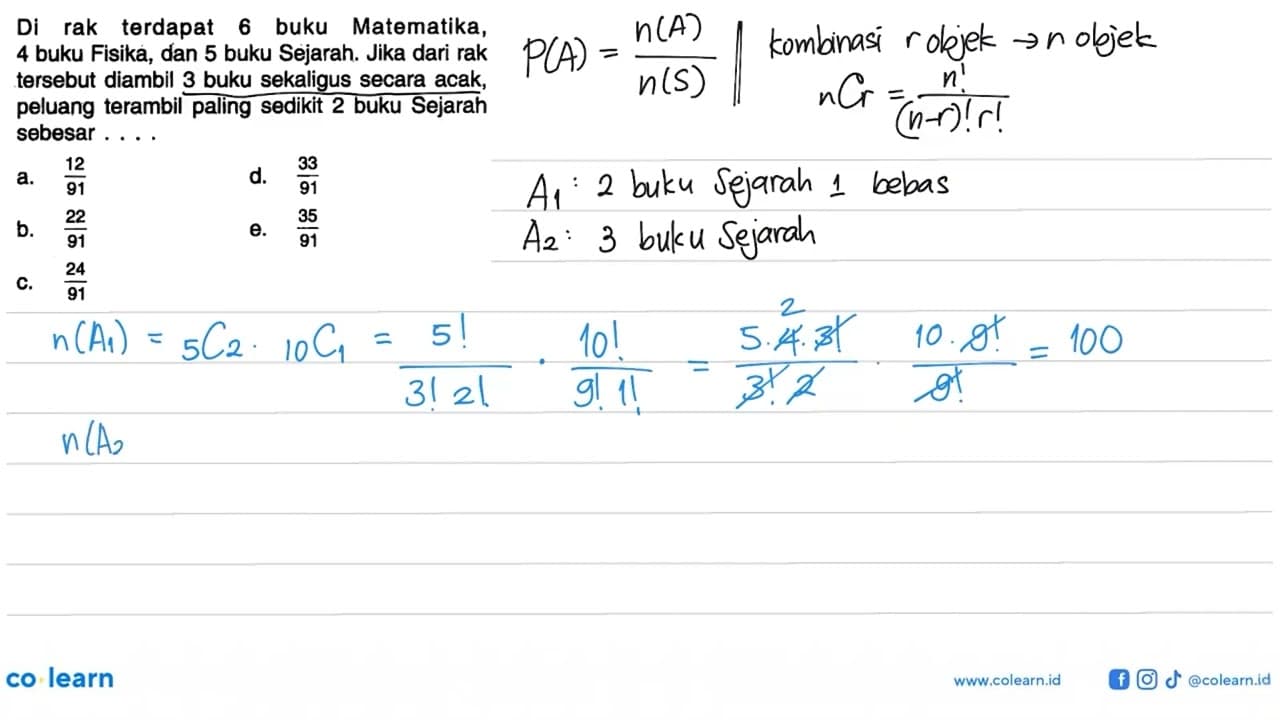 Di rak terdapat 6 buku Matematika,
4 buku Fisika, dan 5 buku Sejarah. Jika dari rak
tersebut diambil 3 buku sekaligus secara acak,
peluang terambil paling sedikit 2 buku Sejarah
sebesar . . . .
a. 12/91
b. 22/91
c. 24/91
d. 33/91
e. 35/91
P(A) = n(A)/n(S)
kombinasi r objek → n objek
nCr = n!/(n-r)! r!
A1 : 2 buku Sejarah 1 bebas
A2 : 3 buku Sejarah
n(A1) = 5C2 . 10C1 = 5!/3! 2! . 10!/9! 1! = 5.4.3!/3! 2 . 10.9!/9! = 100
2
n(A2
co learn
www.colearn.id
@colearn.id